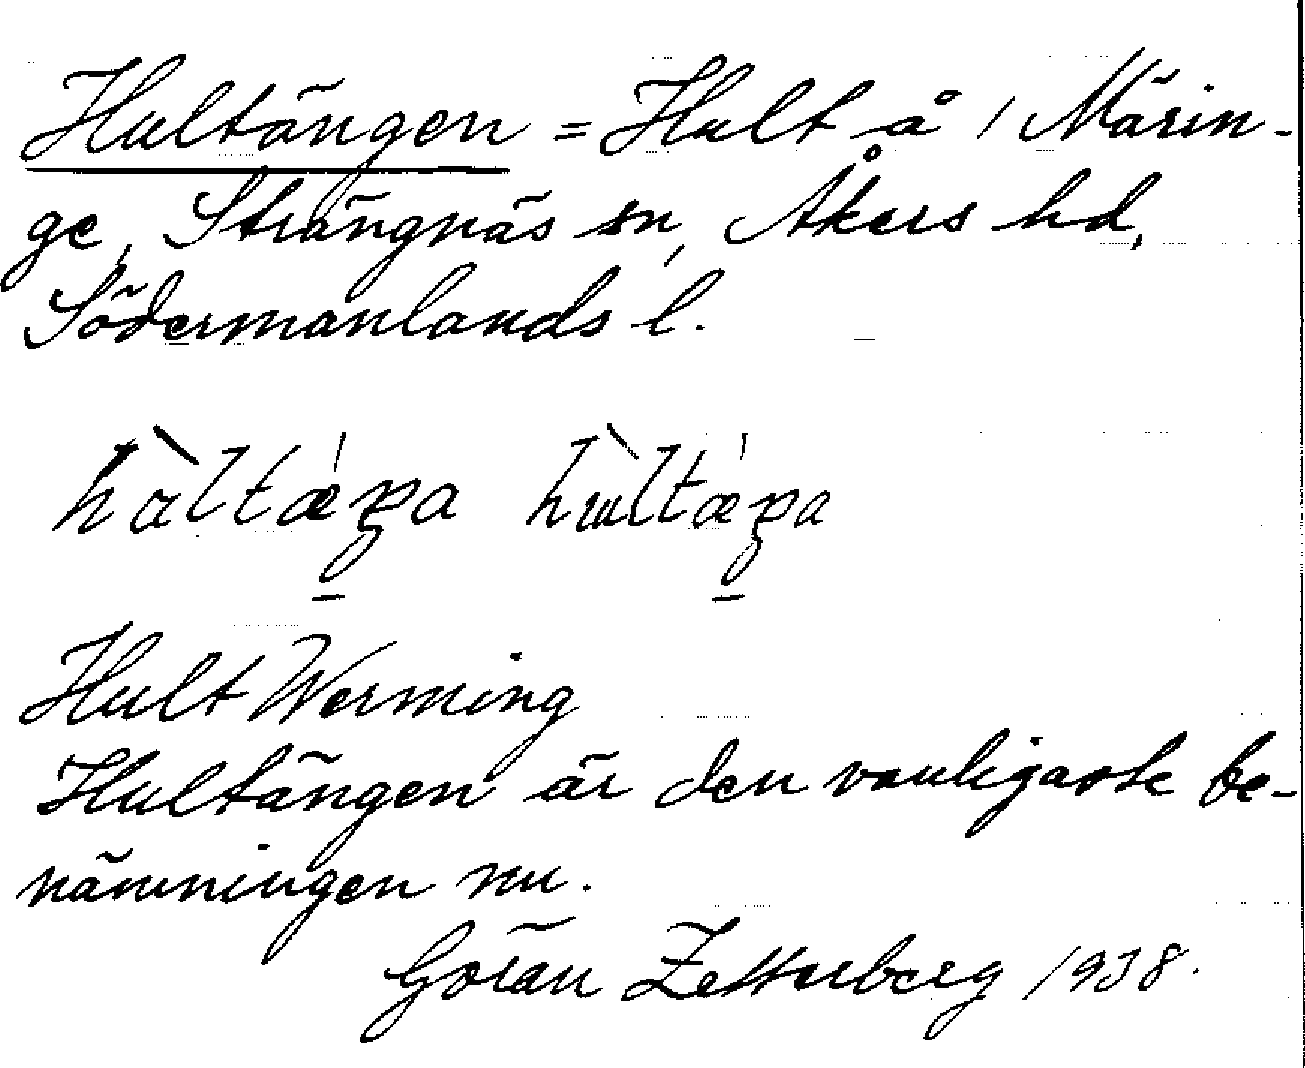 Hultängen = Hult å / Märin-
ge, Strängnäs sn, Åkers hd,
Södermanlands l.
Hult Werming
Hultängen är den vanligaste be-
nämningen nu.
Göran Zetterberg 1938.